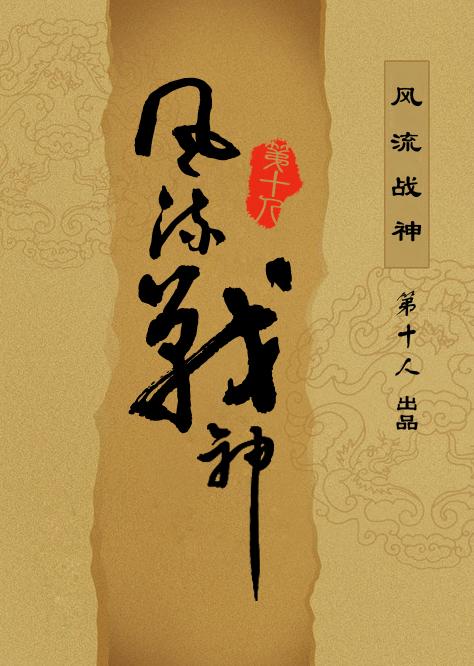 风流戰神
第十人
风流战神
第十人 出品